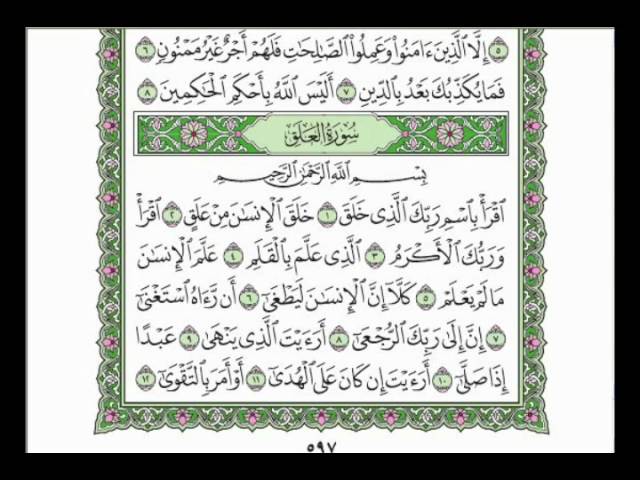 ٥ إِلَّا ٱلَّذِينَ ءَامَنُوا۟ وَعَمِلُوا۟ ٱلصَّـٰلِحَـٰتِ فَلَهُمْ أَجْرٌ غَيْرُ مَمْنُونٍ ٦
فَمَا يُكَذِّبُكَ بَعْدُ بِٱلدِّينِ ٧ أَلَيْسَ ٱللَّهُ بِأَحْكَمِ ٱلْحَـٰكِمِينَ ٨
سُورَةُ العَلَقِ
بِسْمِ ٱللَّهِ ٱلرَّحْمَـٰنِ ٱلرَّحِيمِ
ٱقْرَأْ بِٱسْمِ رَبِّكَ ٱلَّذِى خَلَقَ ١ خَلَقَ ٱلْإِنسَـٰنَ مِنْ عَلَقٍ ٢ ٱقْرَأْ
وَرَبُّكَ ٱلْأَكْرَمُ ٣ ٱلَّذِى عَلَّمَ بِٱلْقَلَمِ ٤ عَلَّمَ ٱلْإِنسَـٰنَ
مَا لَمْ يَعْلَمْ ٥ كَلَّآ إِنَّ ٱلْإِنسَـٰنَ لَيَطْغَىٰٓ ٦ أَن رَّءَاهُ ٱسْتَغْنَىٰٓ
٧ إِنَّ إِلَىٰ رَبِّكَ ٱلرُّجْعَىٰٓ ٨ أَرَءَيْتَ ٱلَّذِى يَنْهَىٰ ٩ عَبْدًا
إِذَا صَلَّىٰٓ ١٠ أَرَءَيْتَ إِن كَانَ عَلَى ٱلْهُدَىٰٓ ١١ أَوْ أَمَرَ بِٱلتَّقْوَىٰٓ ١٢
٥٩٧